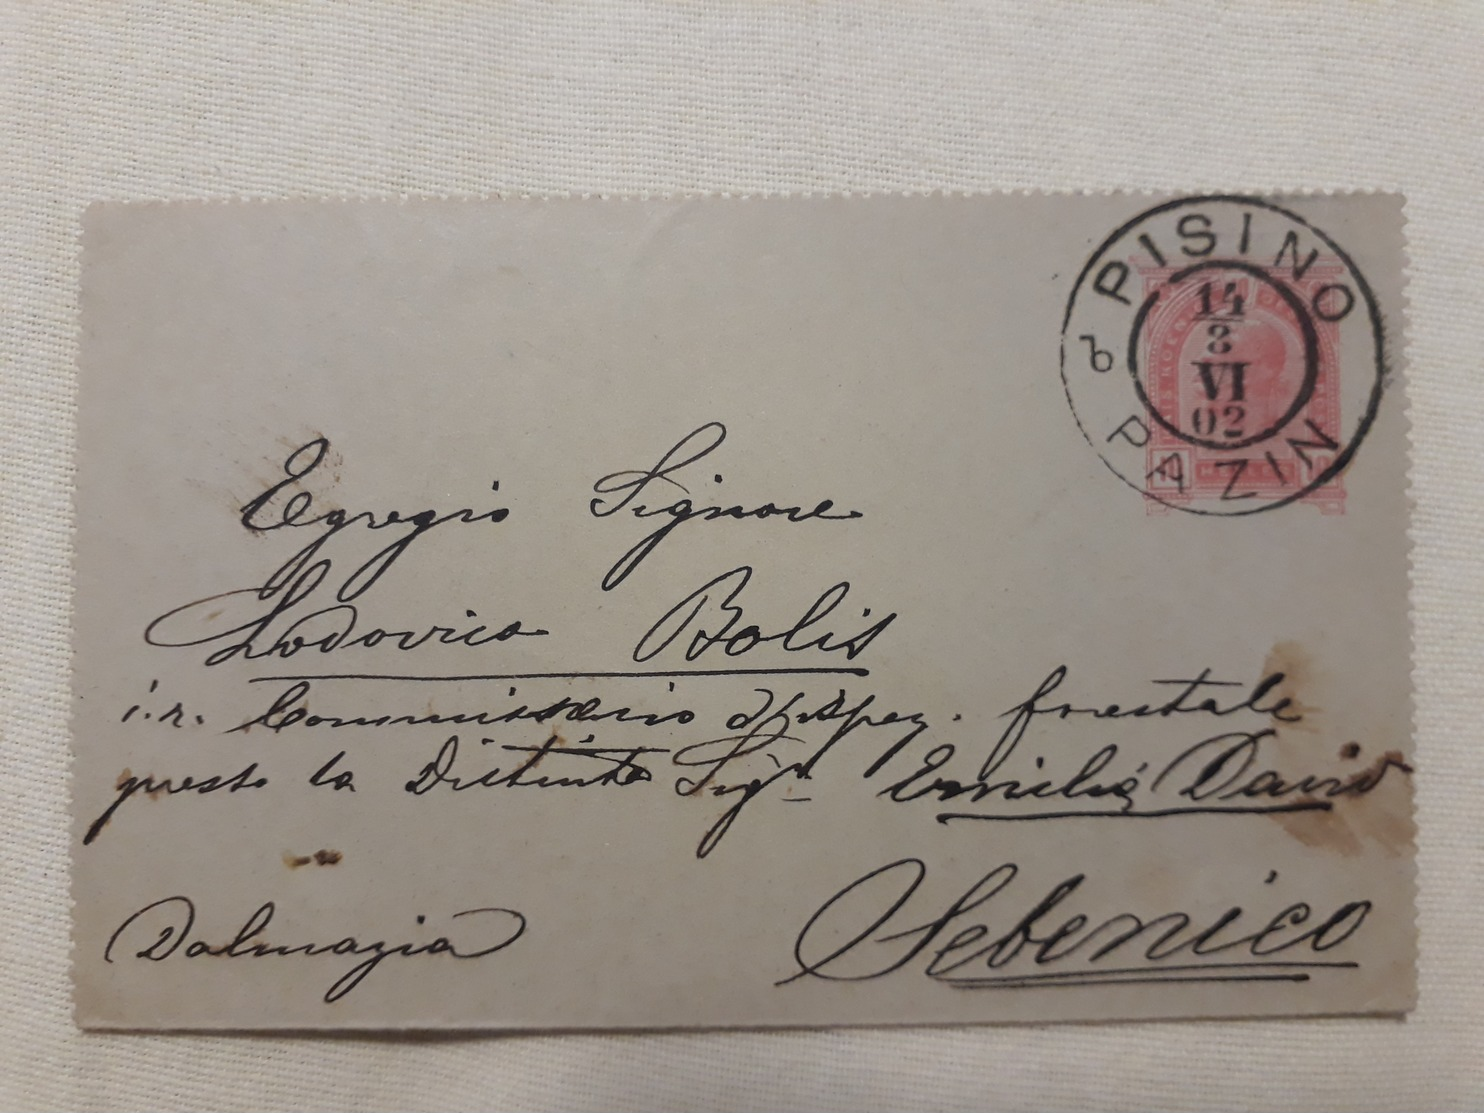 PISINO
14
8
VI
02
b
PAZIN
Egregio Signore
Lodovico Bolis
i.r. Commissario d'Ispez. forestale
presso la Distinta Sigra Emilia David
Dalmazia
Sebenico